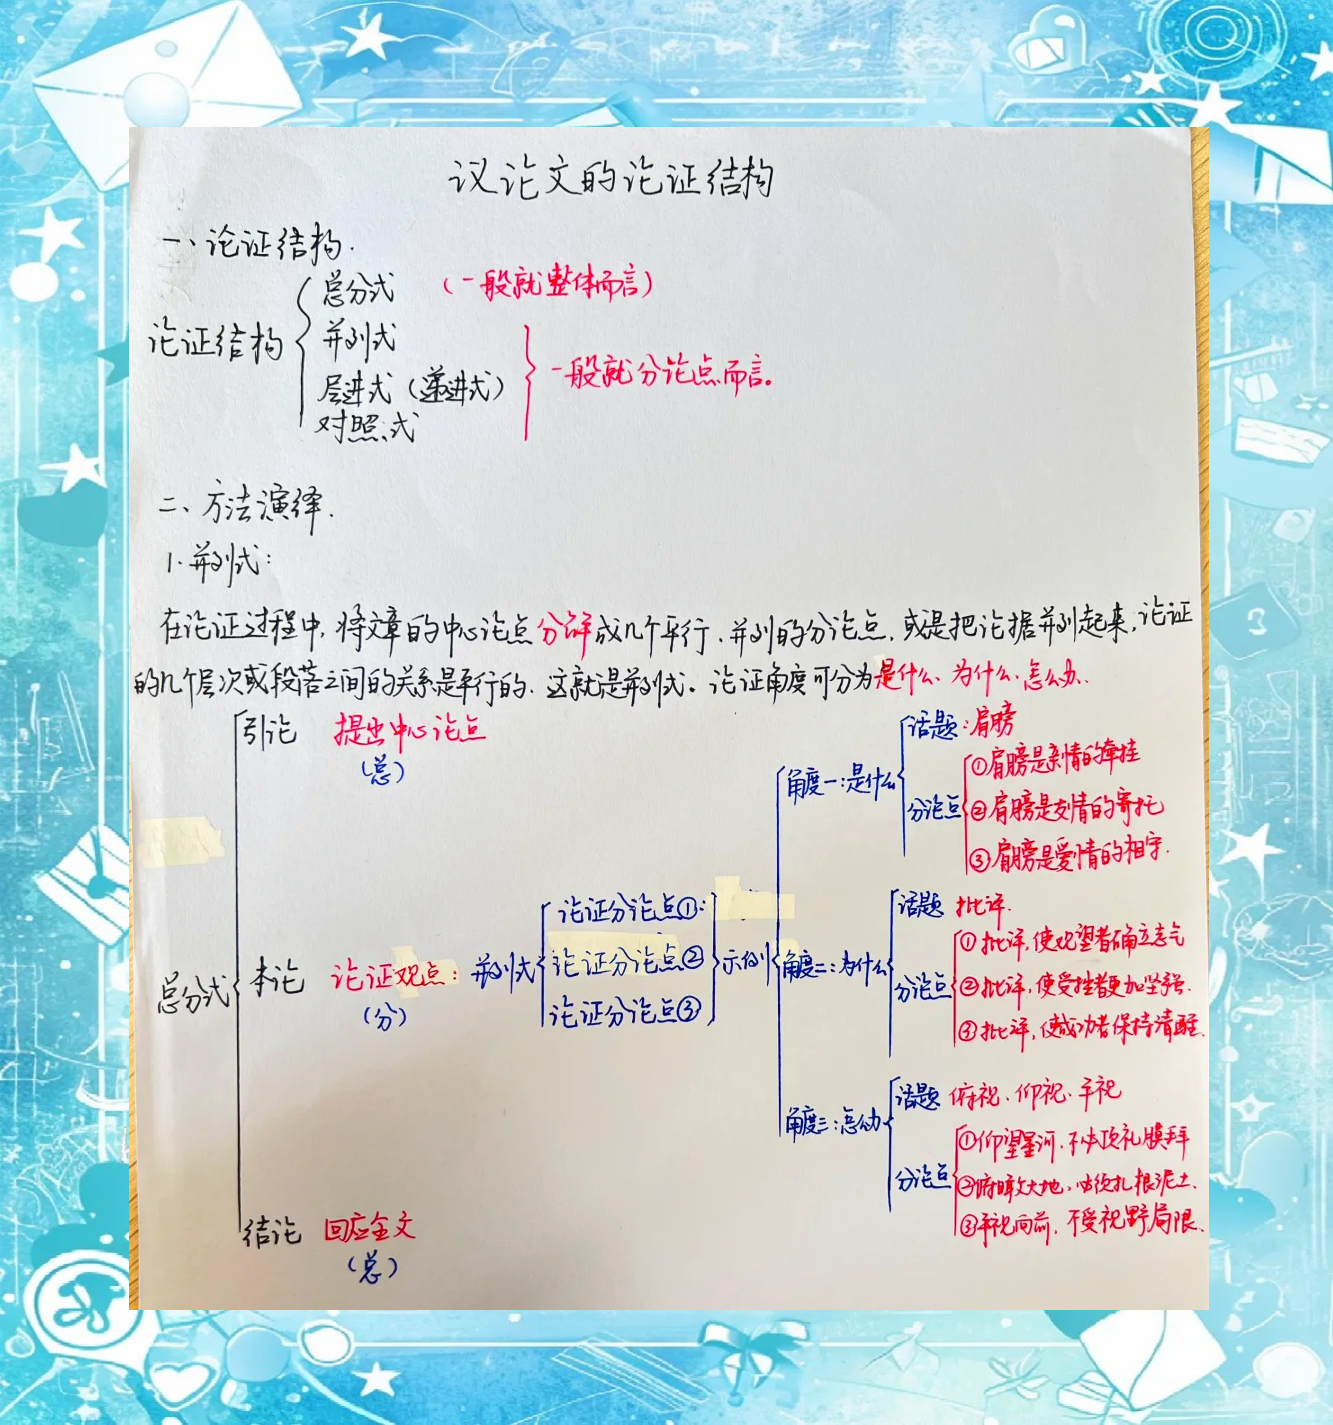 议论文的论证结构
一、论证结构.
论证结构
总分式 (一般就整体而言)
并列式
层进式(递进式)
对照式
一般就分论点而言。
二、方法演绎.
1.并列式:
在论证过程中,将文章的中心论点分解成几个平行、并列的分论点,或是把论据并列起来,论证
的几个层次或段落之间的关系是平行的.这就是并列式。论证角度可分为是什么、为什么、怎么办.
总分式
引论 提出中心论点
(总)
本论 论证观点:
(分)
并列式
论证分论点①:
论证分论点②
论证分论点③
示例
角度一:是什么
话题:肩膀
分论点
①肩膀是亲情的牵挂
②肩膀是友情的寄托
③肩膀是爱情的相守.
角度二:为什么
话题 批评.
分论点
①批评,使观望者确立志气
②批评,使受挫者更加坚强.
③批评,使成功者保持清醒.
角度三:怎么办
话题 俯视、仰视、平视
分论点
①仰望星河,不必顶礼膜拜
②俯瞰大地,必须扎根泥土.
③平视向前,不受视野局限.
结论 回应全文
(总)